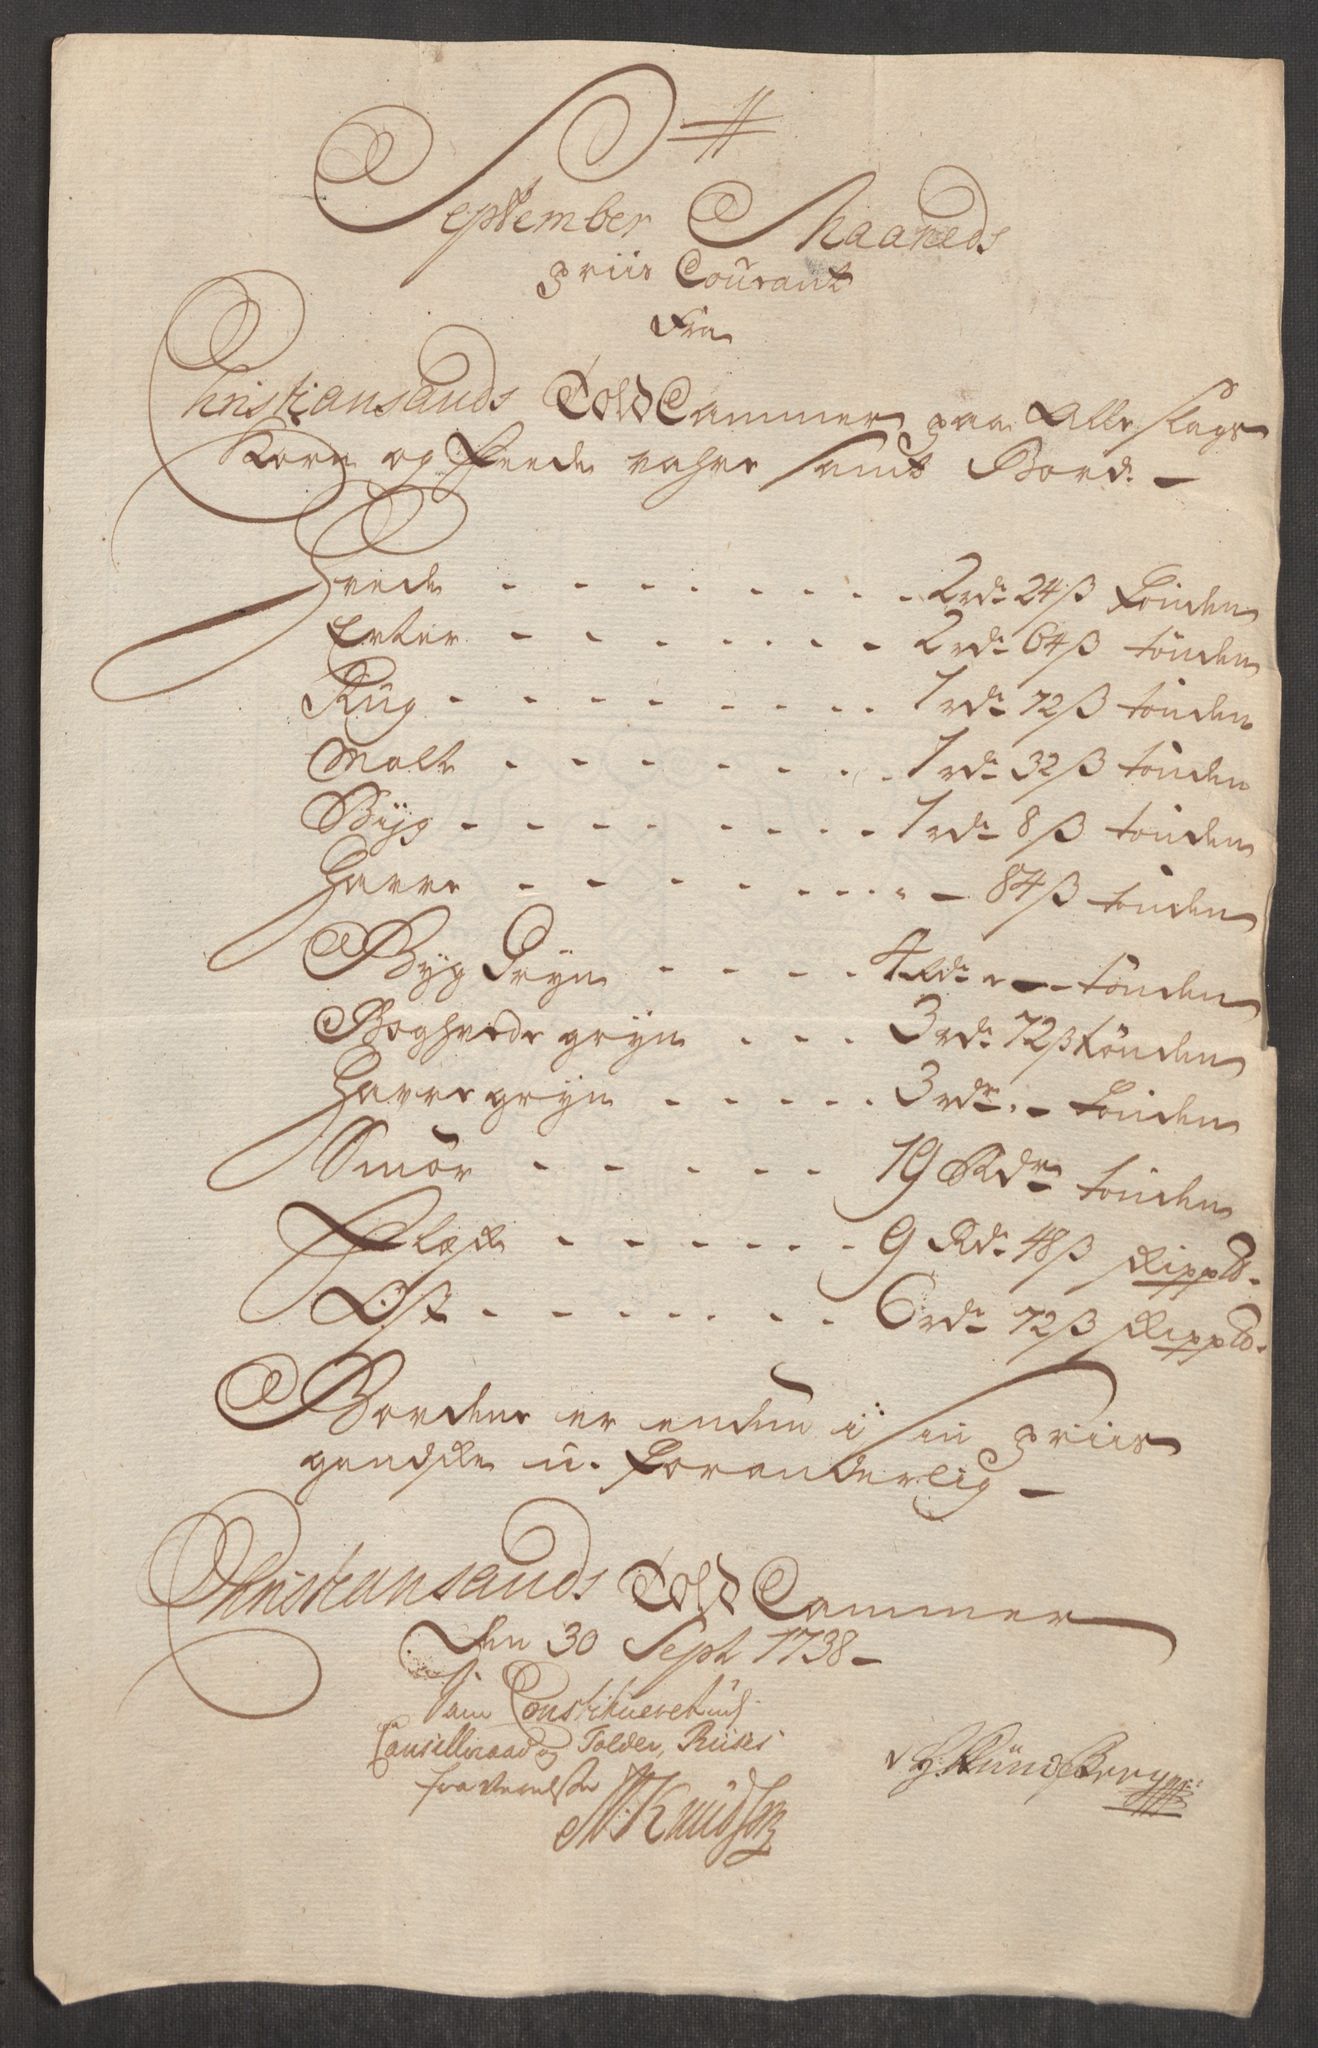 September Maaneds
priis Courant
Fra
Christiansands Told Cammer paa Alle slags
Korn og feede vahre samt Bord. -
Hvede - - - - - - - 2 rd. 24 ß tönden
Erter - - - - - - - 2 rd. 64 ß tönden
Rug - - - - - - - - 1 rd. 72 ß tönden
Malt - - - - - - - 1 rd. 32 ß tönden
Byg - - - - - - - - 1 rd. 8 ß tönden
Havre - - - - - - - - - 84 ß tönden
Byg Gryn - - - - 4 Rd. - - tönden
Boghvede gryn - - - 3 rd. 72 ß tönden
Havre gryn - - - - - 3 rdr. - tönden
Smör - - - - - 19 Rdr tönden
Flesk - - - - - - 9 Rd. 48 ß skippd.
Ost - - - - - - - 6 rd. 72 ß skippd.
Bordene er enden i sin priis
gandske u-foranderlig -
Christiansands Told Cammer
Den 30 Sept 1738 -
Som Constitueret udi
Cancelliraad og Tolder, Riises
fraverelse
M: Knudson